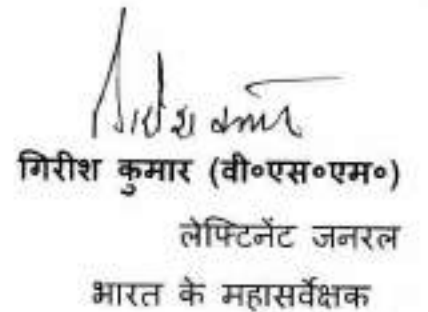 गिरीश कुमार
गिरीश कुमार (वी०एस०एम०)
लेफ्टिनेंट जनरल
भारत के महासर्वेक्षक